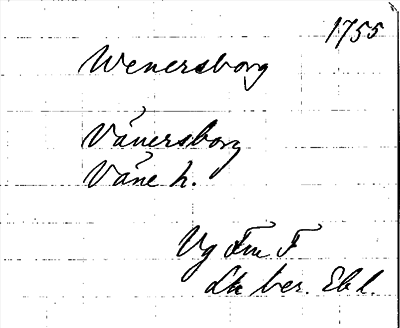 1755
Wenersborg
Vänersborg
Väne h.
Vg Fru F
Lk ber. Ebl.